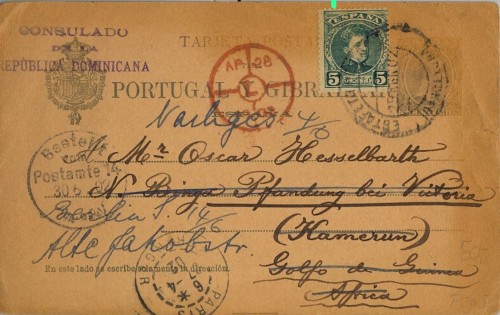 CONSULADO
DE LA
REPÚBLICA DOMINICANA
TARJETA POSTAL
ESPAÑA
5 CENTS 5
AP. 28
PORTUGAL Y GIBRAL
Nachges. 4/6
Bestellt
vom
Postamte 14
30.6
Mr Oscar Hesselbarth
Pfandung bei Victoria
Berlin S. 14/6
(Kamerun)
Alte Jakobstr.
Golfo de Guinea
En este lado se escribe solamente la dirección.
Africa
PARIS